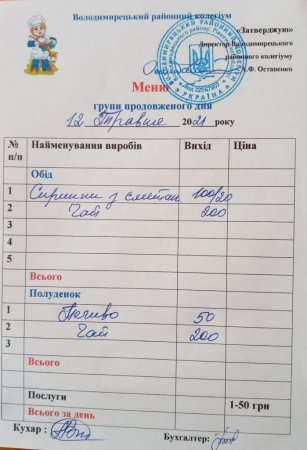 Володимирецький районний колегіум
«Затверджую»
Директор Володимирецького
районного колегіуму
А.Ф. Остапенко
Меню
групи продовженого дня
12 Травня 2021 року
№ п/п Найменування виробів Вихід Ціна
Обід
1 Сирники з сметан 100/20
2 Чай 200
3
4
5
Всього
Полуденок
1 Печиво 50
2 Чай 200
3
Всього
Послуги 1-50 грн
Всього за день
Кухар :
Бухгалтер: